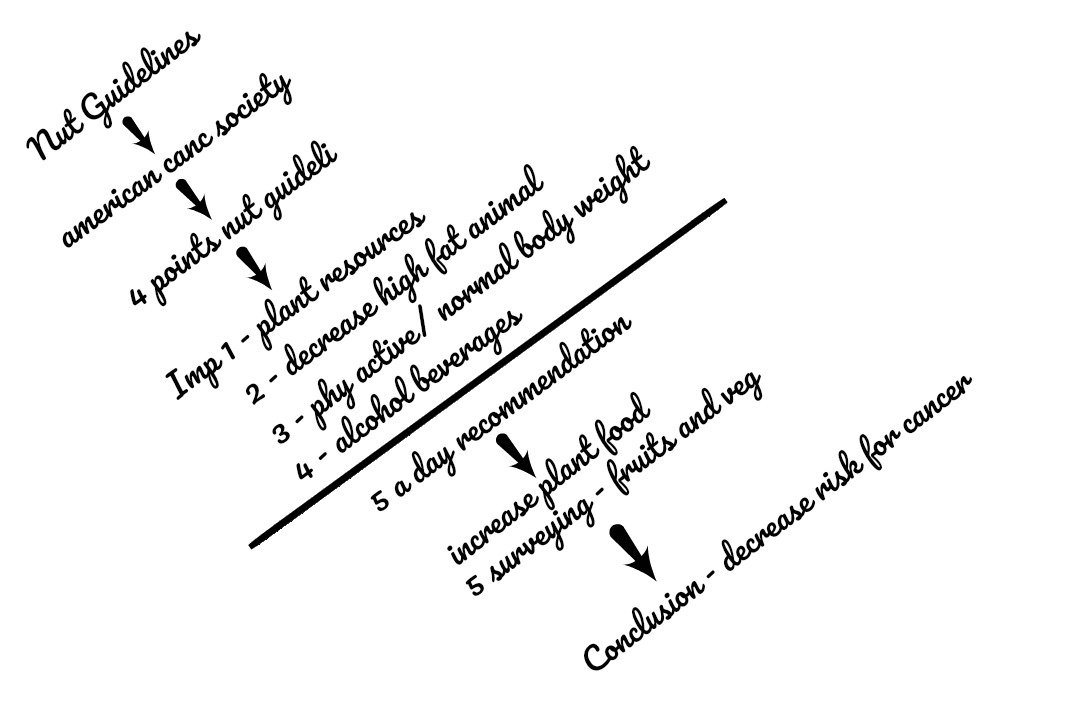 Nut Guidelines
american canc society
4 points nut guideli
Imp 1 - plant resources
2 - decrease high fat animal
3 - phy active/ normal body weight
4 - alcohol beverages
5 a day recommendation
increase plant food
5 surveying - fruits and veg
Conclusion - decrease risk for cancer